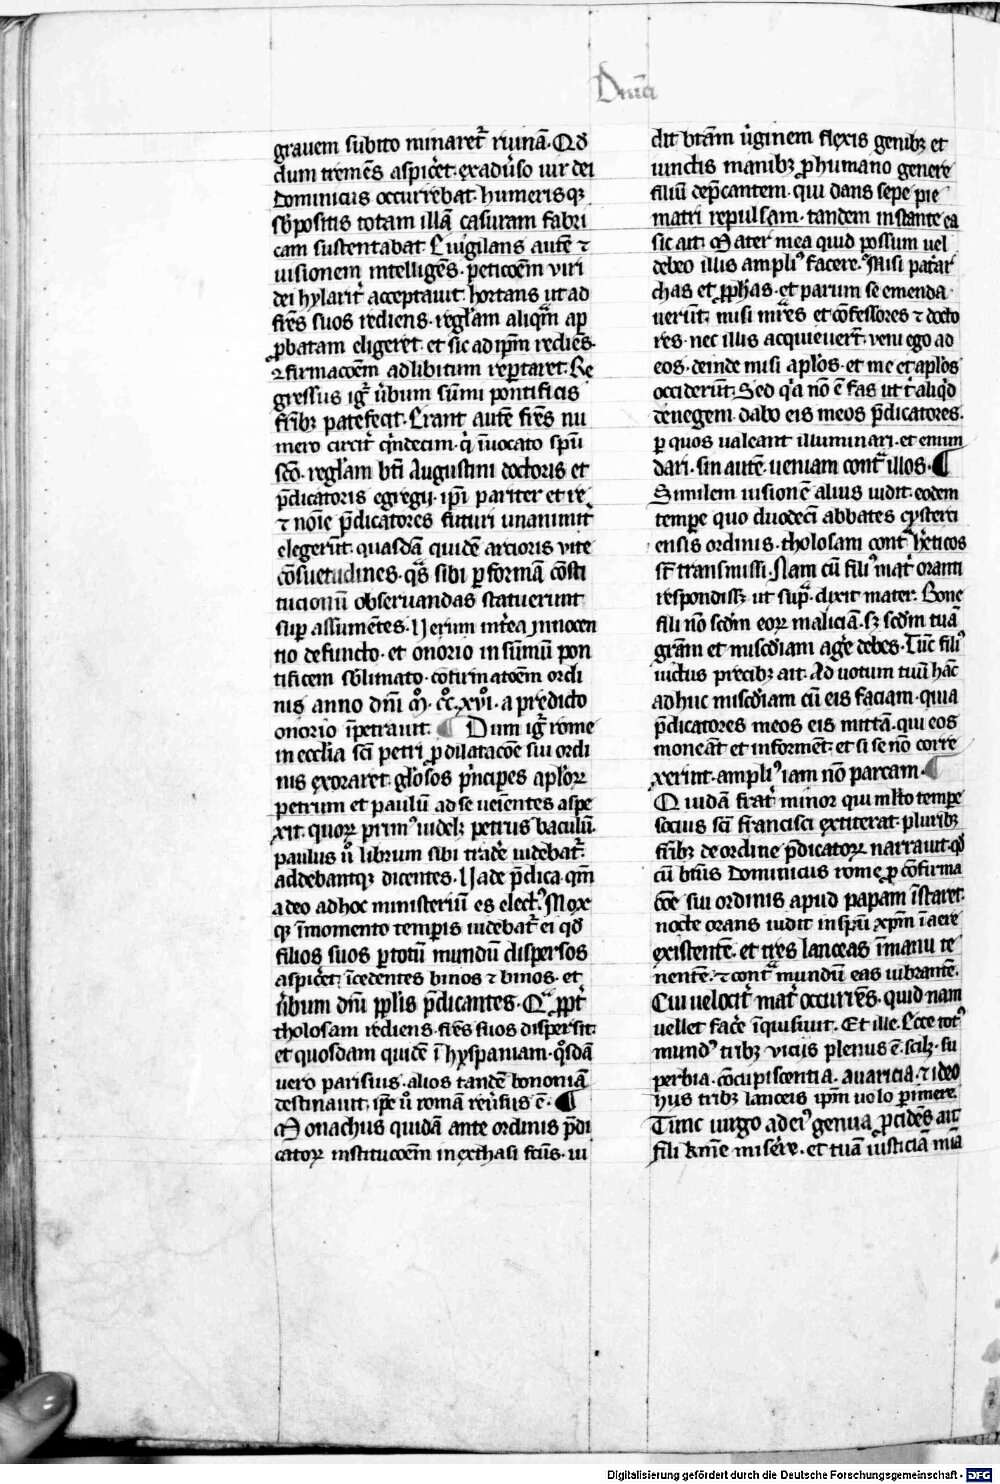 Dnici
grauem subito minaret᷑ ruinā. Qd̄
dum tremēs aspic̄et. exadūso uir dei
Dominicus occurrebat. humerisqꝫ
sb̄positis totam illā casuram fabri
cam sustentabat. Euigilans autē ⁊
uisionem intelligēs. peticōem viri
dei hylarit᷑ acceptauit. hortans ut ad
fr̄es suos rediens. reglam aliqm̄ ap
ꝓbatam eligeret. et sic ad ip̄m rediēs.
ꝯfirmacōem ad libitum reportaret. Re
gressus ig᷑ ūbum sūmi pontificis
fr̄ibꝫ patefecit. Erant autē fr̄es nu
mero circit᷑ q̄ndecim. q̄ īuocato spū
sco̅. reglam bt̄i Augustini doctoris et
p̄dicatoris egregij. ip̄i pariter et re
⁊ noīe p̄dicatores futuri unanimit᷑
elegerūt. quasdā quidē arcioris vite
cōsuetudines. qᵃs sibi ꝑ formā cōsti
tucionū obseruandas statuerunt
sup assumētes. Uerum int̄ea Innocen
tio defuncto. et onorio in sūmū pon
tificem sb̄limato. cōfirmatōem ordi
nis anno dn̄i mͦ. cͨcͦ. xviͦ. a predicto
onorio īpetrauit. ¶ Dum ig᷑ rome
in ecclīa sc̄i petri ꝓ dilatacōe sui ordi
nis exoraret. gl̄osos p̄ncipes apl̄oꝝ
petrum et paulū ad se ueīentes aspe
xit. quoꝝ primꝰ uidelꝫ petrus baculū.
paulus ū̄ librum sibi trad̄e uidebat᷑.
addebantqꝫ dicentes. Uade p̄dica. qm̄
a deo ad hoc ministeriū es electꝰ. Mox
qꝫ ī momento temporis uidebat᷑ ei qd̄
filios suos ꝑ totū mundū dispersos
aspic̄et. īcedentes binos ⁊ binos. et
ūbum dn̄i pp̄lis p̄dicantes. Qᵃ ꝓpt᷑
tholosam rediens. fr̄es suos dispersit.
et quosdam quidē ī hyspaniam. qͦsdā
uero parisius. alios tandē bononiā
destinauit. ip̄e ū̄ romā reūsus ē. ¶
Monachus quidā ante ordinis p̄di
catoꝝ institucōem in exthasi fc̄us. ui
dit bt̄am ūginem flexis genibꝫ et
iunctis manibꝫ ꝓ humano genere
filiū dep̄cantem. qui dans sepe pie
matri repulsam. tandem instante ea
sic ait. Mater mea quid possum uel
debeo illis ampliꝰ facere. Misi pat̄ar
chas et ꝓph̄as. et parum se emenda
uerūt. misi mr̄es et cōfessores ⁊ docto
res. nec illis acquieuerūt. veni ego ad
eos. deinde misi apl̄os. et me et apl̄os
occiderūt. Sed qᵃ nō ē fas ut t᷑ aliqͦd
denegem. dabo eis meos p̄dicatores.
ꝑ quos ualeant illuminari. et emun
dari. sin autē. ueniam contᵃ illos. ¶
Similem uisionē alius uidit. eodem
tempore quo duodecī abbates cysterci
ensis ordinis. tholosam contᵃ h̄eticos
sͭ transmissi. Nam cū filiꝰ mat᷑ oranti
respondissꝫ ut supᵃ. dixit mater. Bone
fili nō scdm̄ eoꝝ maliciā. sꝫ scdm̄ tuā
grām et misc̄diam aḡe debes. Tūc filiꝰ
uictus precibꝫ ait. Ad uotum tuū hāc
adhuc misc̄diam cū eis faciam. quia
p̄dicatores meos eis mittā. qui eos
moneāt et informēt. et si se nō corre
xerint. ampliꝰ iam nō parcam. ¶
Quidā frat᷑ minor qui ml̄to tempore
socius sc̄i francisci extiterat. pluribꝫ
fr̄ibꝫ de ordine p̄dicatoꝝ narrauit. qd̄
cū bt̄us Dominicus rome ꝓ cōfirma
cōe sui ordinis apud papam īstaret.
nocte orans uidit in spū xpm̄ ī aere
existentē. et tres lanceas ī manu te
nentē. ⁊ contᵃ mundū eas uibrantē.
Cui uelocit᷑ mat᷑ occurrēs. quid nam
uellet fac̄e īquisiuit. Et ille. Ecce totꝰ
mundꝰ tribꝫ vicijs plenus ē. scilꝫ. su
perbia. cōcupiscentia. auaricia. ⁊ ideo
hijs tribꝫ lanceis ip̄m uolo perimere.
Tunc uirgo ad eiꝰ genua ꝓcidēs ait
fili karīe miser̄e. et tuā iusticiā mīa
Digitalisierung gefördert durch die Deutsche Forschungsgemeinschaft - DFG